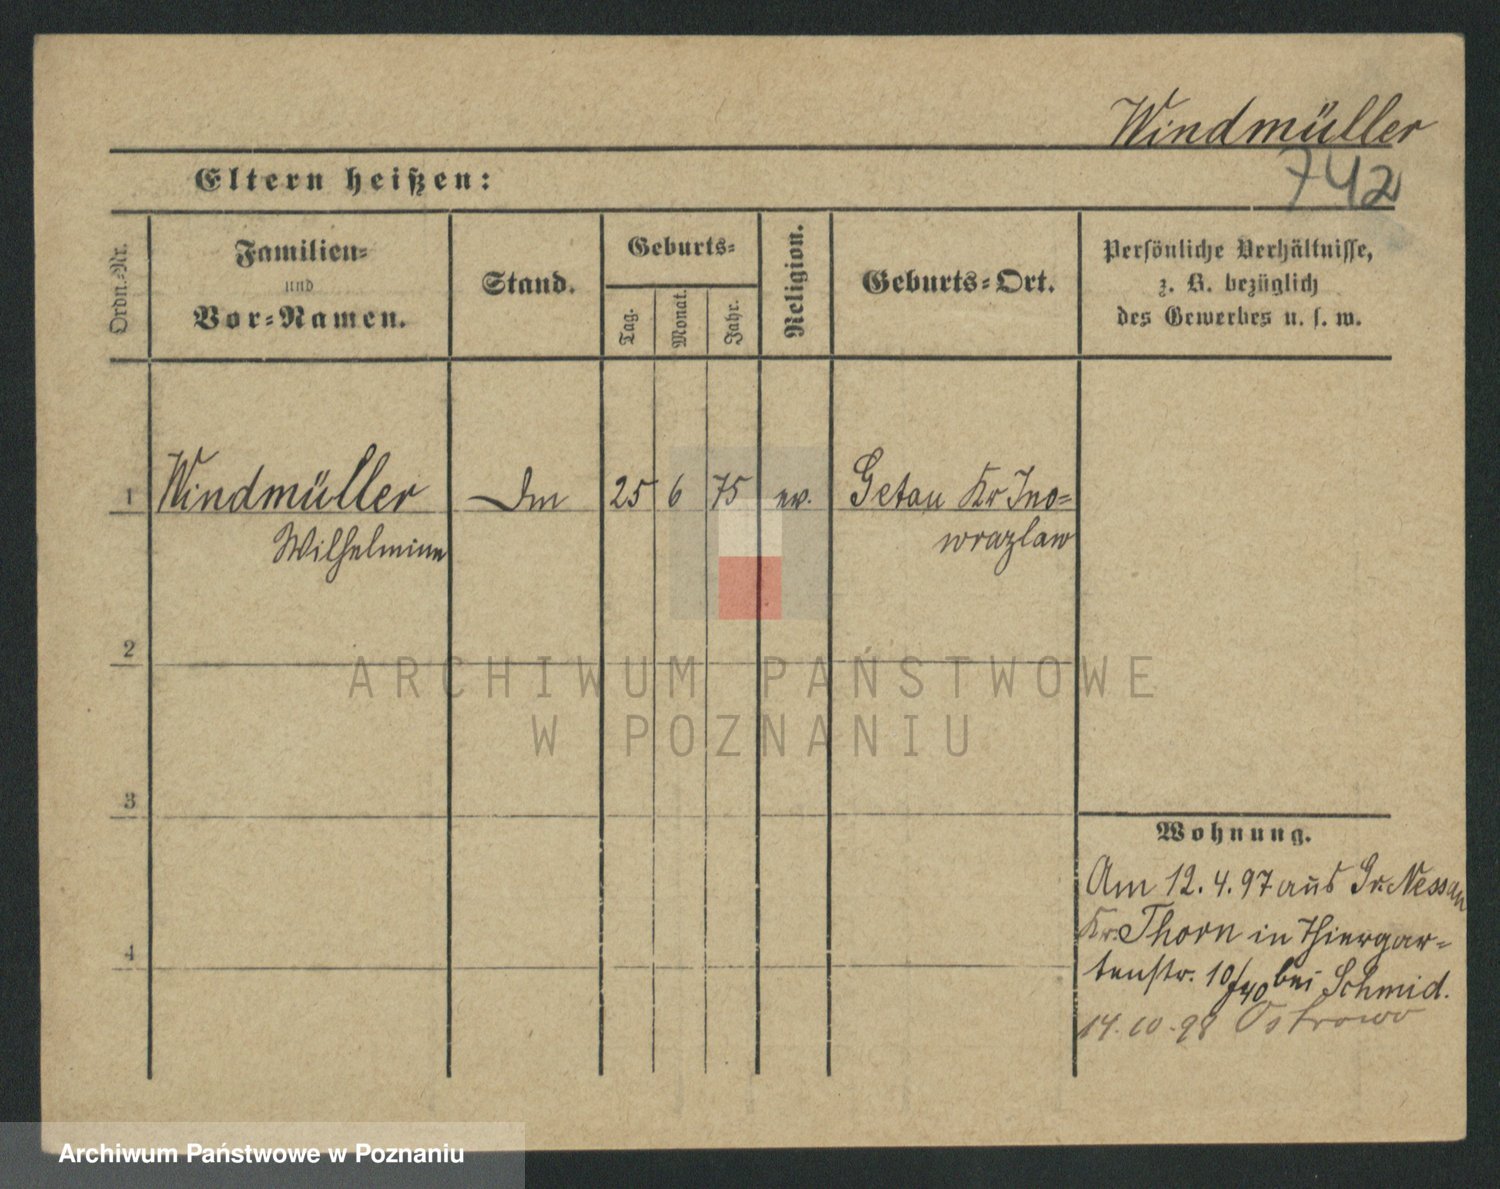 Windmüller
742
Eltern heißen:
Ordn.-Nr.
Familien-
und
Vor-Namen.
Stand.
Geburts-
Tag.
Monat.
Jahr.
Religion.
Geburts-Ort.
Persönliche Verhältnisse,
z. B. bezüglich
des Gewerbes u. s. w.
1 Windmüller 25 6 75 ev. Getau Kr Ino-
Wilhelmine wrazlaw
2
ARCHIWUM PAŃSTWOWE
W POZNANIU
3
Wohnung.
Am 12.4.97 aus Gr. Nessau
Kr. Thorn in Thiergar-
4
tenstr. 10/40 bei Schmid.
14.10.98 Ostrowo
Archiwum Państwowe w Poznaniu